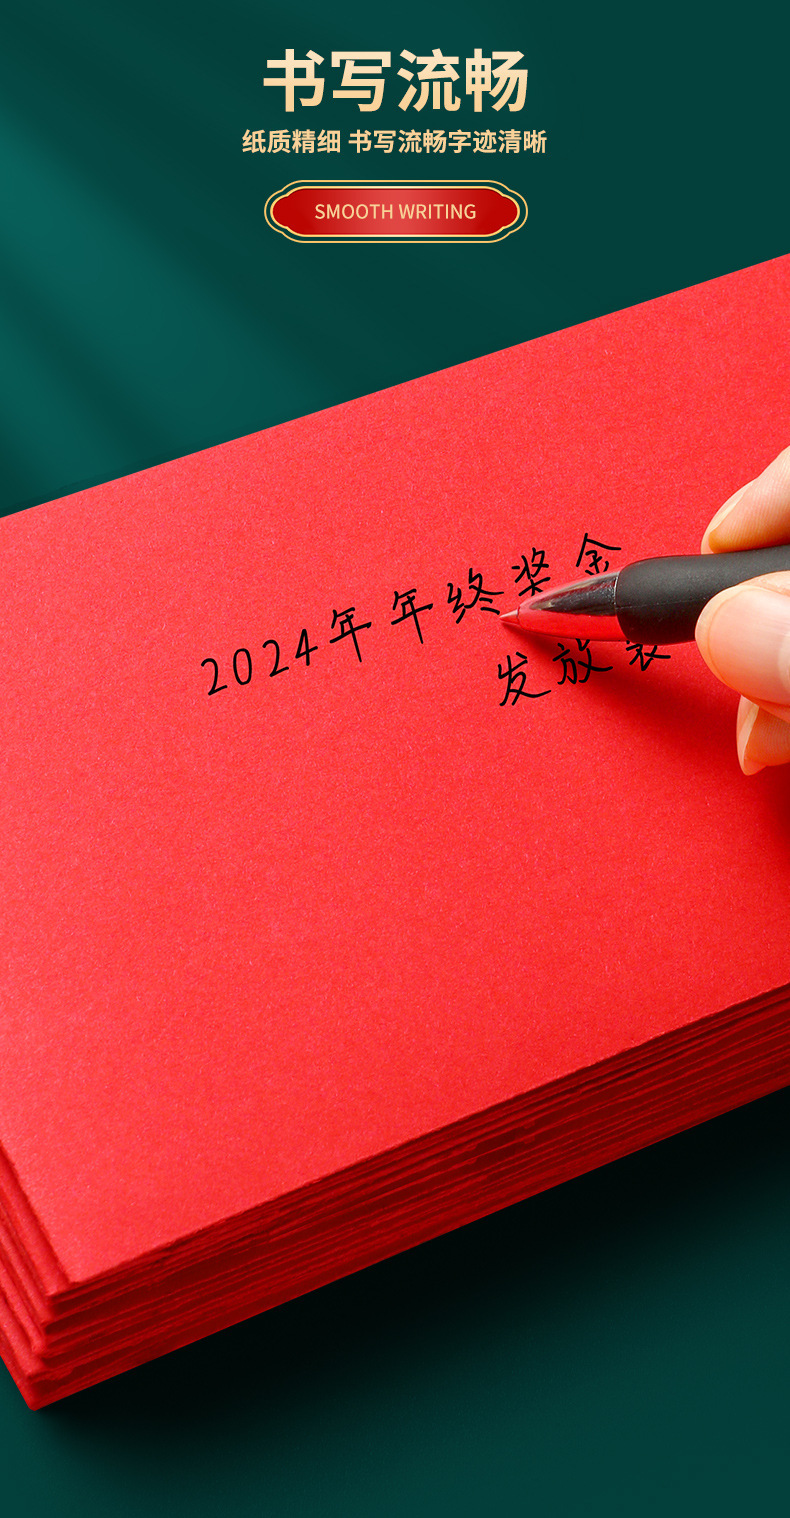 书写流畅
纸质精细 书写流畅字迹清晰
SMOOTH WRITING
2024年年终奖金
发放袋